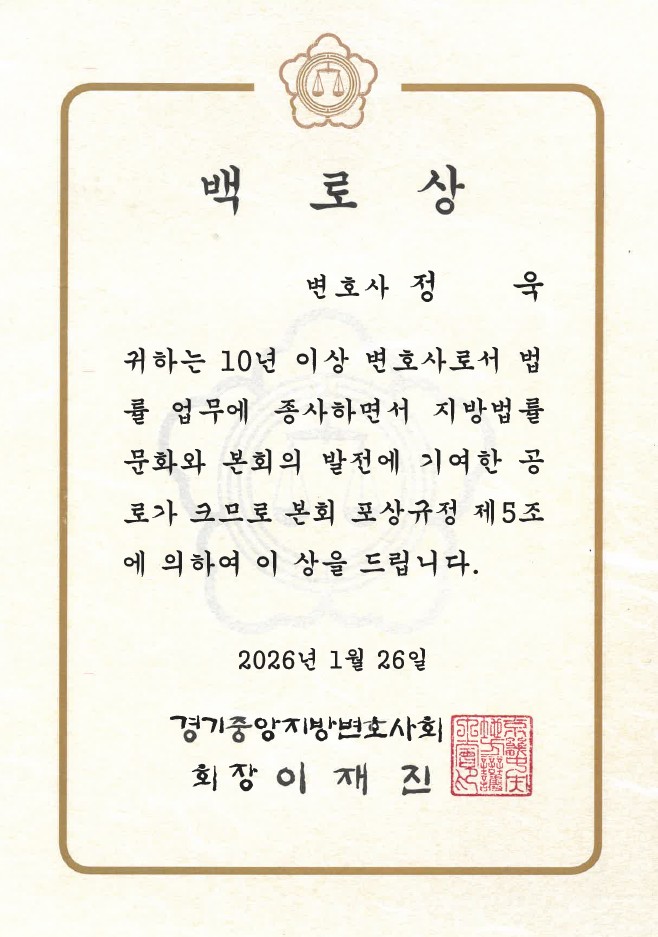 백 로 상
변호사 정 욱
귀하는 10년 이상 변호사로서 법
률 업무에 종사하면서 지방법률
문화와 본회의 발전에 기여한 공
로가 크므로 본회 포상규정 제5조
에 의하여 이 상을 드립니다.
2026년 1월 26일
경기중앙지방변호사회
회장 이 재 진